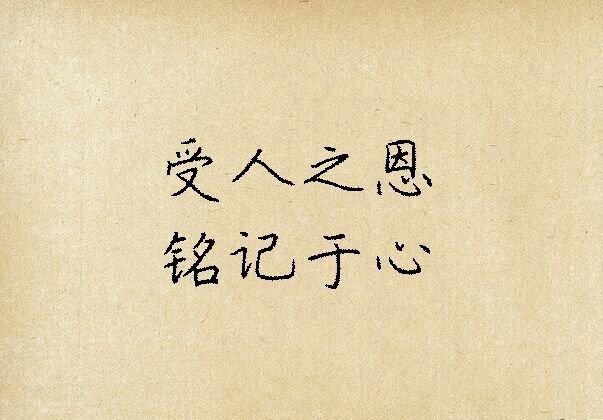 受人之恩
铭记于心